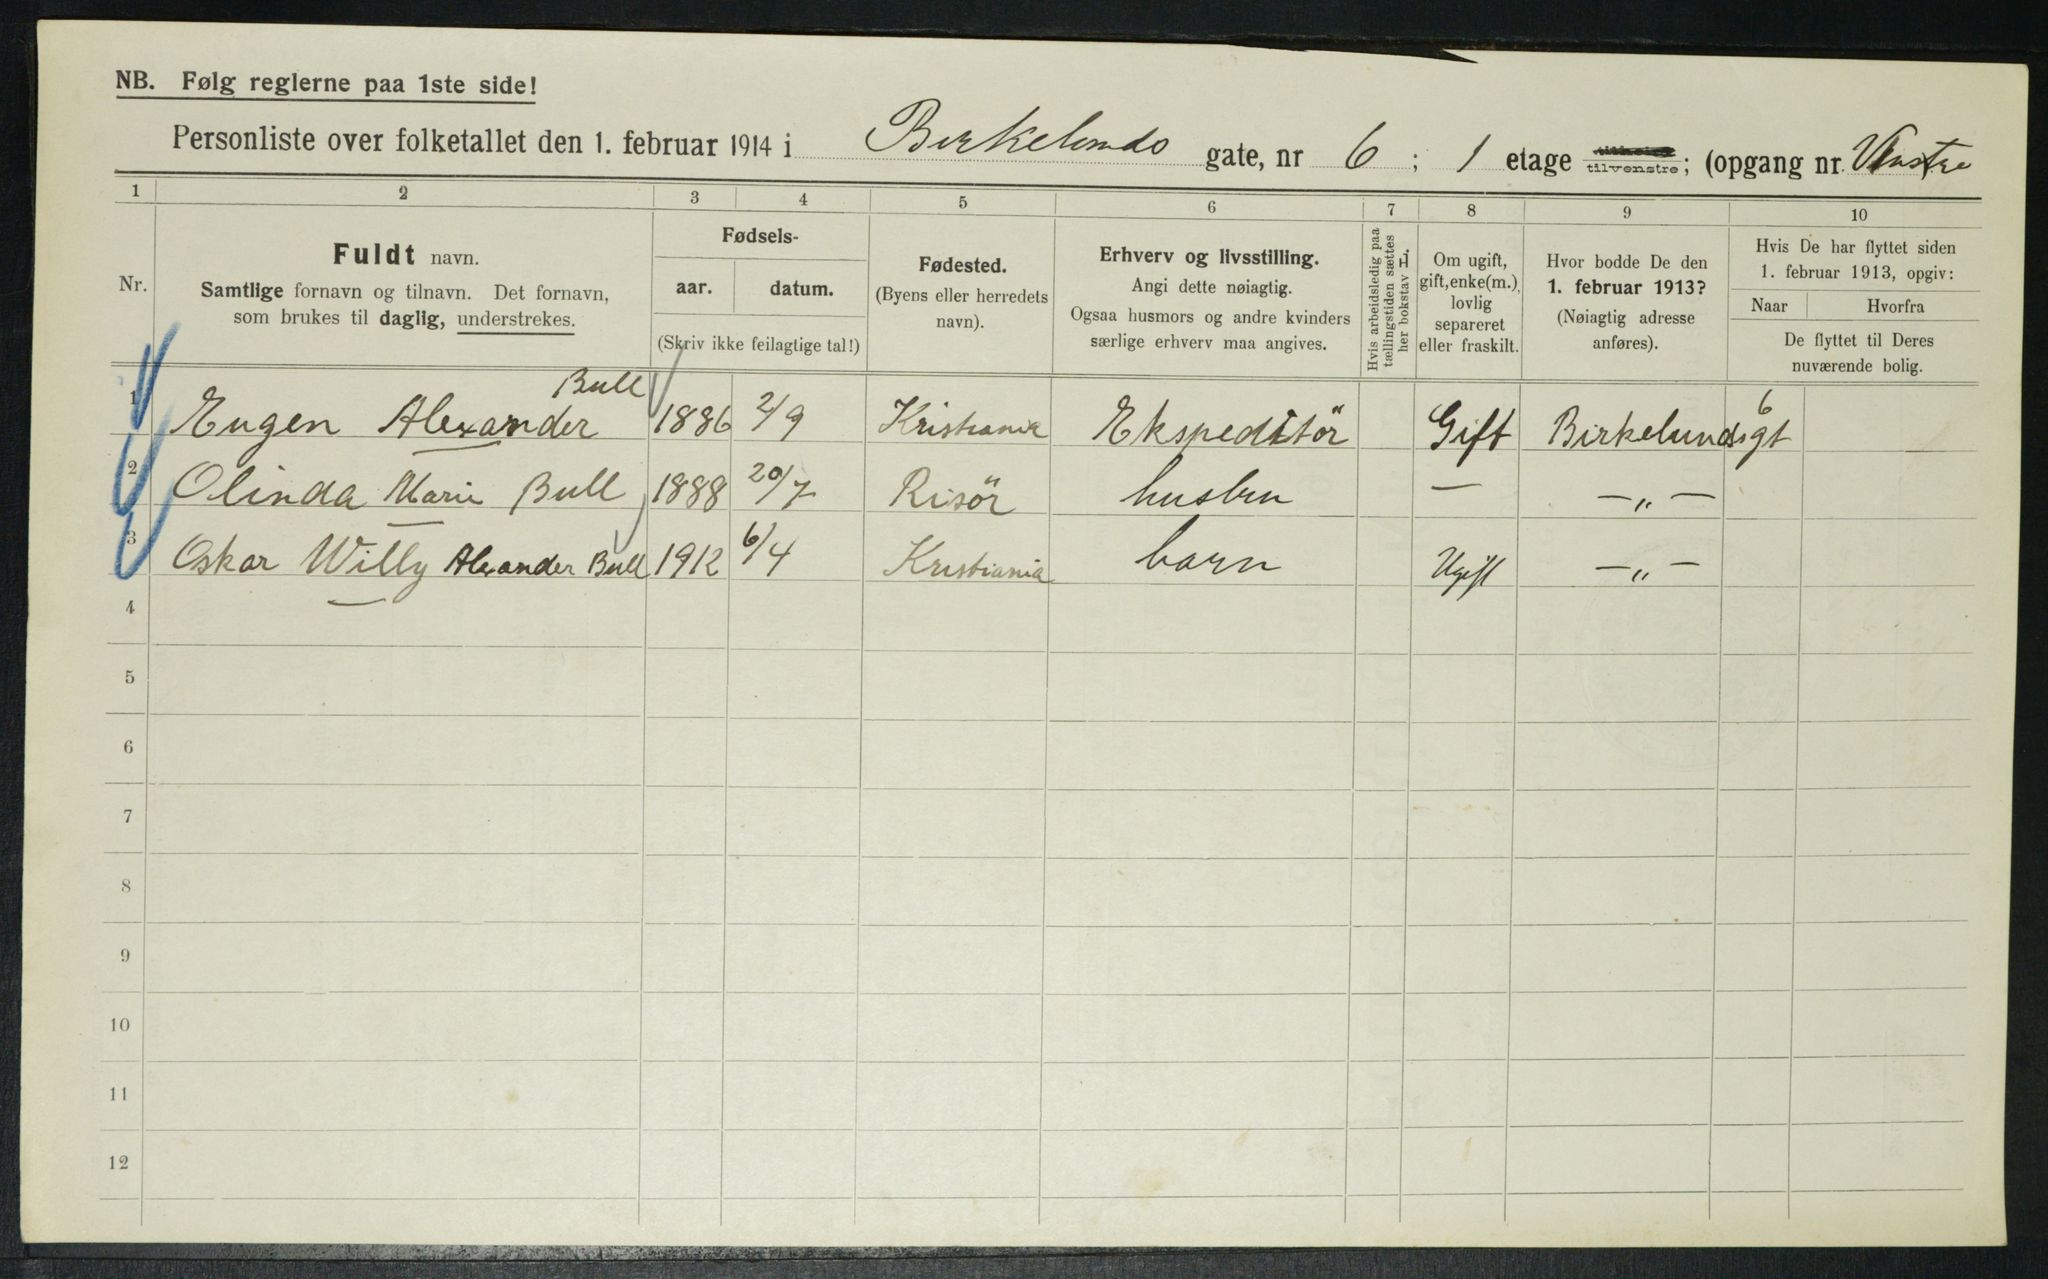 NB. Følg reglerne paa 1ste side!
Personliste over folketallet den 1. februar 1914 i Birkelunds gate, nr 6 ; 1 etage tilvenstre; (opgang nr. Venstre
1 2 3 4 5 6 7 8 9 10
Nr.
Fuldt navn.
Samtlige fornavn og tilnavn. Det fornavn,
som brukes til daglig, understrekes.
Fødsels-
aar. datum.
(Skriv ikke feilagtige tal!)
Fødested.
(Byens eller herredets
navn).
Erhverv og livsstilling.
Angi dette nøiagtig.
Ogsaa husmors og andre kvinders
særlige erhverv maa angives.
Hvis arbeidsledig paa
tællingstiden sættes
her bokstav L.
Om ugift,
gift, enke(m.),
lovlig
separeret
eller fraskilt.
Hvor bodde De den
1. februar 1913?
(Nøiagtig adresse
anføres).
Hvis De har flyttet siden
1. februar 1913, opgiv:
Naar Hvorfra
De flyttet til Deres
nuværende bolig.
1 Eugen Alexander Bull 1886 2/9 Kristiania Ekspeditör Gift Birkelundsgt 6
2 Olinda Marie Bull 1888 20/7 Risör hustru — —„—
3 Oskar Willy Alexander Bull 1912 6/4 Kristiania barn Ugift —„—
4
5
6
7
8
9
10
11
12